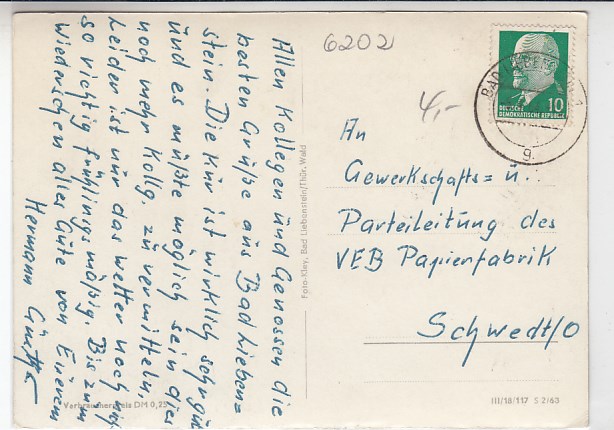 Allen Kollegen und Genossen die
besten Grüße aus Bad Lieben=
stein. Die Kur ist wirklich sehr gut
und es müßte möglich sein dies
noch mehr Kollg. zu vermitteln.
Leider ist nur das Wetter noch
so richtig frühlingsmäßig. Bis zum
Wiedersehen alles Gute von Eurem
Hermann
Verbraucherpreis DM 0,25
Foto-Kley, Bad Liebenstein/Thür. Wald
6202
4,-
BAD LIEBENST
g
10
DEUTSCHE
DEMOKRATISCHE REPUBLIK
An
Gewerkschafts= u.
Parteileitung des
VEB Papierfabrik
Schwedt/O
III/18/117 S 2/63